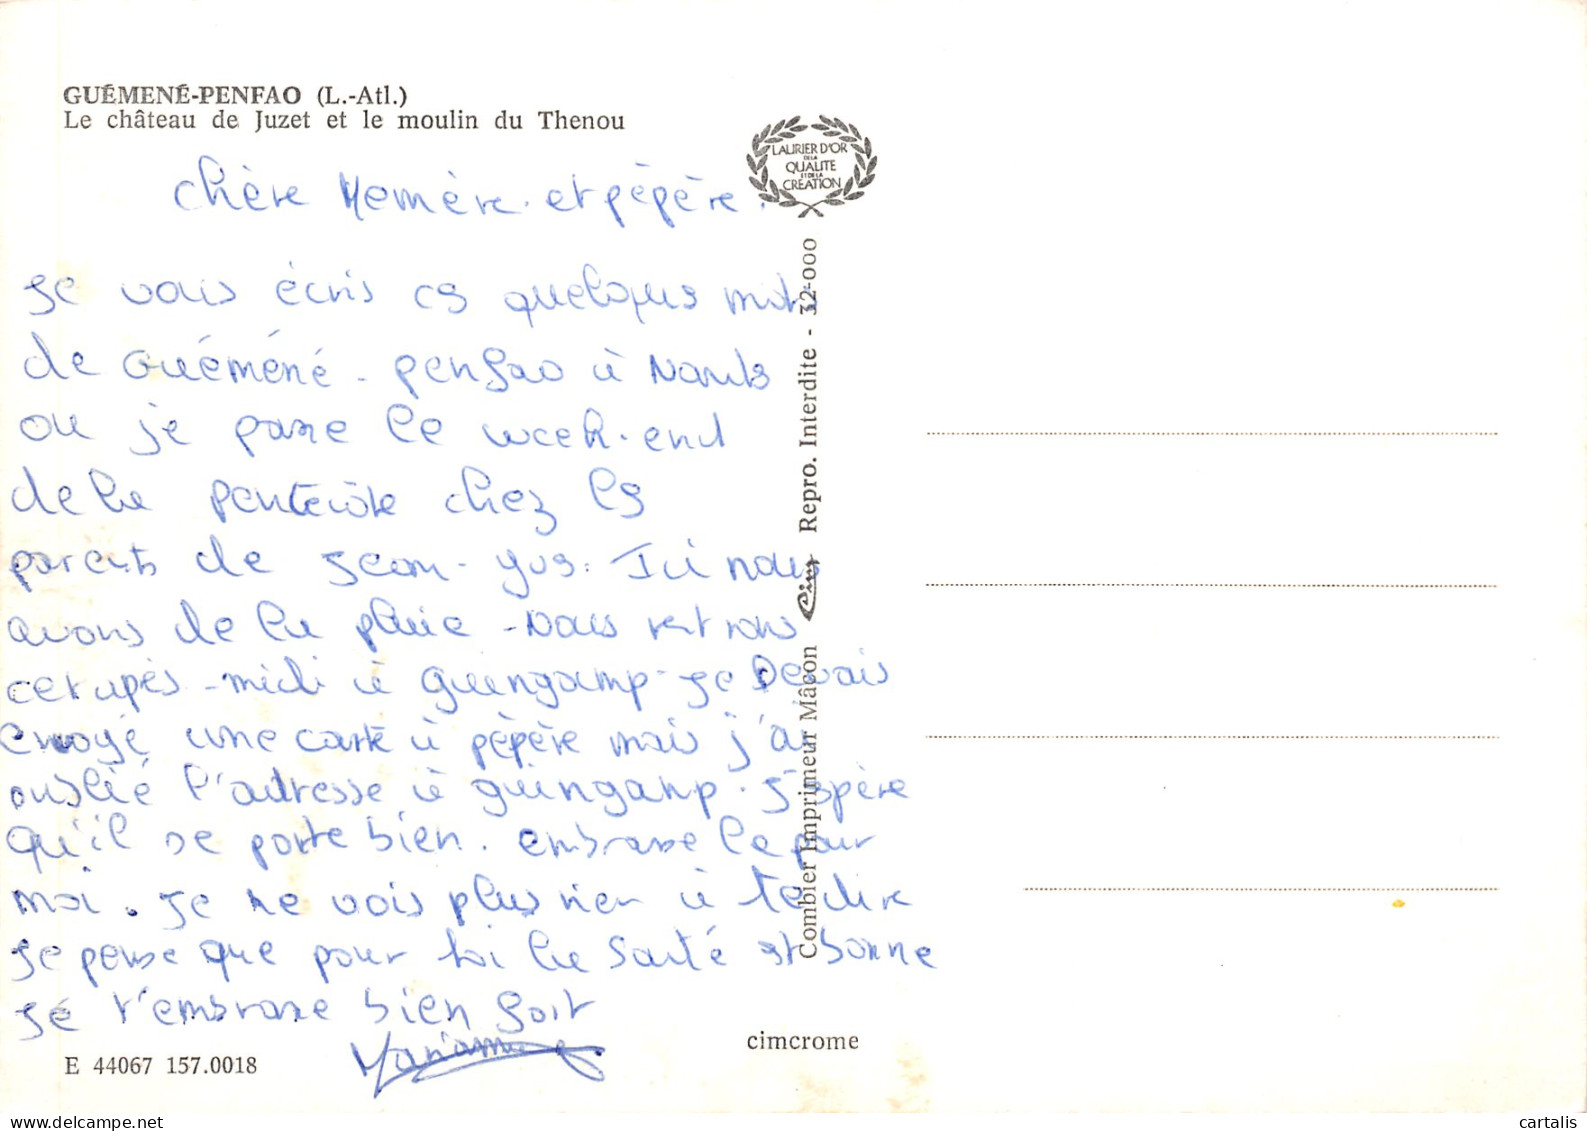 GUÉMENÉ-PENFAO (L.-Atl.)
Le château de Juzet et le moulin du Thenou
LAURIER D'OR
DE LA
QUALITE
ET DE LA
CREATION
chère Memère et pépère.
Je vais écris ces quelques mots
de Guéméné - penfao à Nantes
ou je passe le week-end
de la pentecôte chez les
parents de Jean-yves. Ici nous
avons de la pluie - Nous rentrons
cet après-midi à guingamp - Je Devais
envoyé une carte à pépère mais j'ai
oublié l'adresse à guingamp. J'espère
qu'il se porte bien. embrasse le pour
moi. Je ne vois plus rien à te dire
Je pense que pour toi la santé est bonne
Je t'embrasse bien fort
E 44067 157.0018
cimcrome
Combier Imprimeur Mâcon Cim Repro. Interdite - 32-000
cartalis
delcampe.net